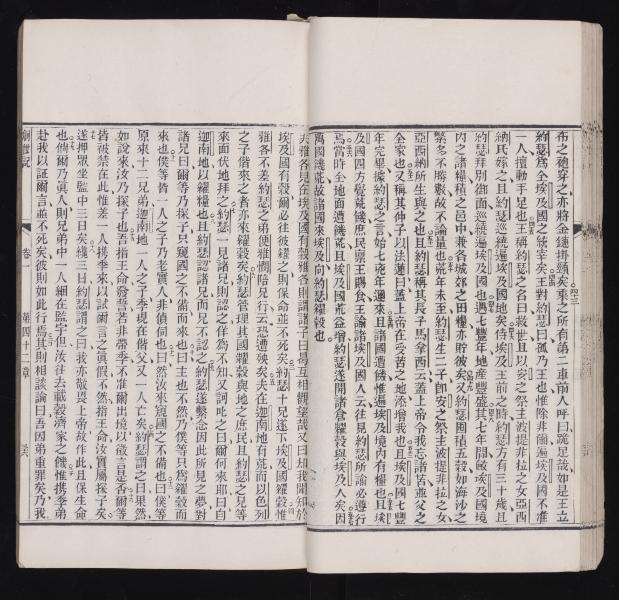 布之砲穿之亦將金鏈掛頸矣乘之所有第二車前人呼曰跪足哉如是王立
約瑟為全埃及國之統宰矣王對約瑟曰孤乃王也惟除非爾遍埃及國不准
一人擅動手足也王稱約瑟之名曰救世且以安之祭主波提非拉之女亞西
納氏嫁之且約瑟巡繞遍埃及國地矣侍埃及王前之時約瑟方有三十歲且
約瑟拜別御面巡繞遍埃及國也遇七豐年地產豐盛其七年間斂埃及國境
內之諸糧積之邑中兼各城郊之田糧亦貯彼矣又約瑟囤積五穀如海沙之
繁多不勝數故不論量也荒年未至約瑟生二子即安之祭主波提非拉之女
亞西納所生與之也且約瑟稱其長子馬拿西云蓋上帝令我忘諸苦並父之
全家也又稱其仲子以法蓮曰蓋上帝在受苦之地添增我也且埃及國七豐
年完畢據約瑟之言始七荒年邇來且諸國遭饑惟遍埃及境內有糧也且埃
及國四方覺饑饉庶民禀王賜食王諭諸埃及國人云往見約瑟所諭必遵行
焉當時全地面遭饑荒且埃及國荒益增約瑟遂開諸倉糶穀與埃及人矣因
萬國饑荒故諸國來埃及向約瑟糴穀也
夫雅各見在埃及國有穀雅各則謂諸子曰曷互相觀望哉又曰却我聞於
埃及國有穀爾必往彼糴之則保命並不死矣約瑟十兄逐下埃及國糴穀惟
雅各不差約瑟之弟便雅憫陪兄行云恐遭殃矣夫在迦南地有荒而以色列
之子偕來之者亦來糴穀矣約瑟管理其國糶穀與地之庶民且約瑟之兄等
來面伏地拜之約瑟一見諸兄則認之佯為不知又訶叱之曰爾何來耶曰自
迦南地以糴糧也且約瑟認諸兄而兄不認之約瑟遂繫念因此所見之夢對
諸兄曰爾等乃探子只窺國之不備而來也曰主也不然乃僕等只為糴穀而
來也僕等皆一人之子乃老實人非偵伺也曰然汝來窺國之不備也曰僕等
原來十二兄弟迦南地一人之子季現在偕父又一人亡矣約瑟謂之曰果然
如說來汝乃探子也吾指王命發誓若非帶季不准爾出境以徵言是否爾等
皆被禁在此惟差一人携季來以試爾言之真假不然指王命汝實屬探子矣
遂押衆坐監中三日矣纔三日約瑟謂之曰我亦敬畏上帝故作此且保生命
也倘爾乃真人則兄弟中一人綑在監宇但汝往去載穀濟家之饑惟携季弟
赴我以証爾言並不死矣彼則如此行焉其則相談論曰吾因弟重罪矣乃我
創世記 卷一 第四十二章